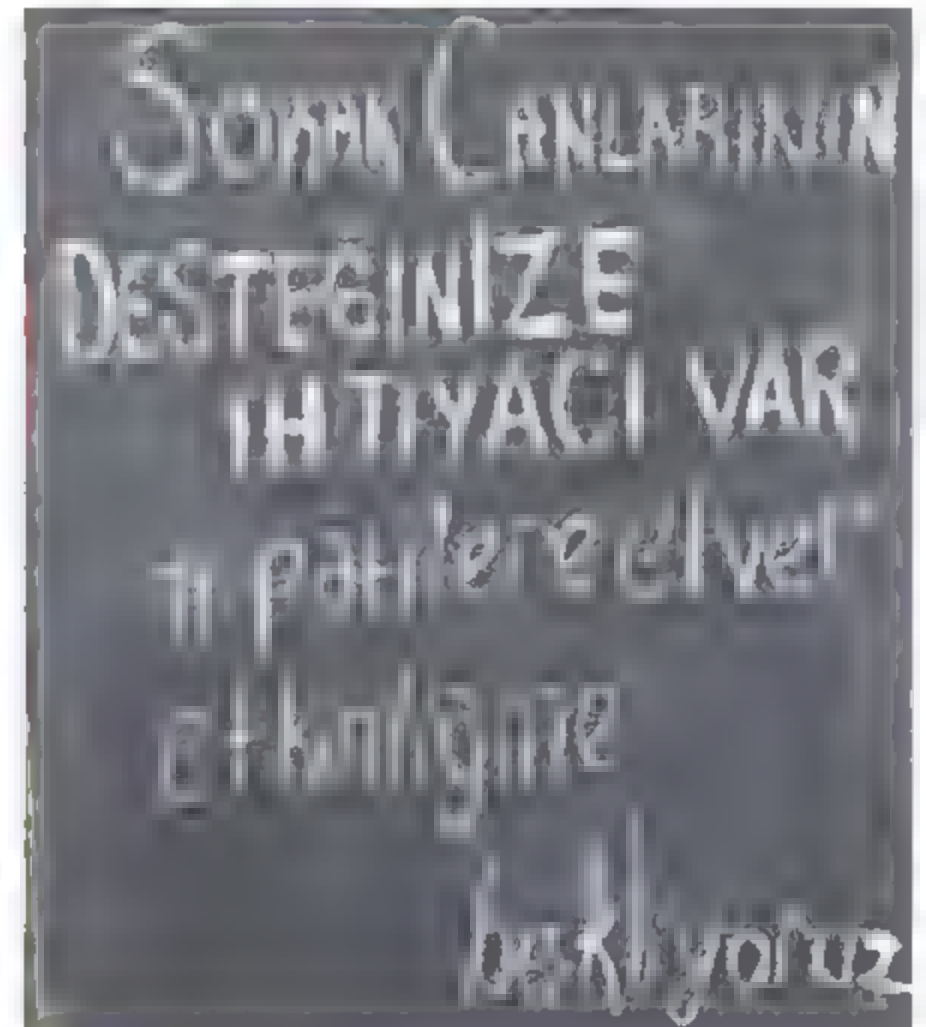 SOKAK CANLARININ
DESTEĞİNİZE
İHTİYACI VAR
patilere
etkinliğine
bekliyoruz